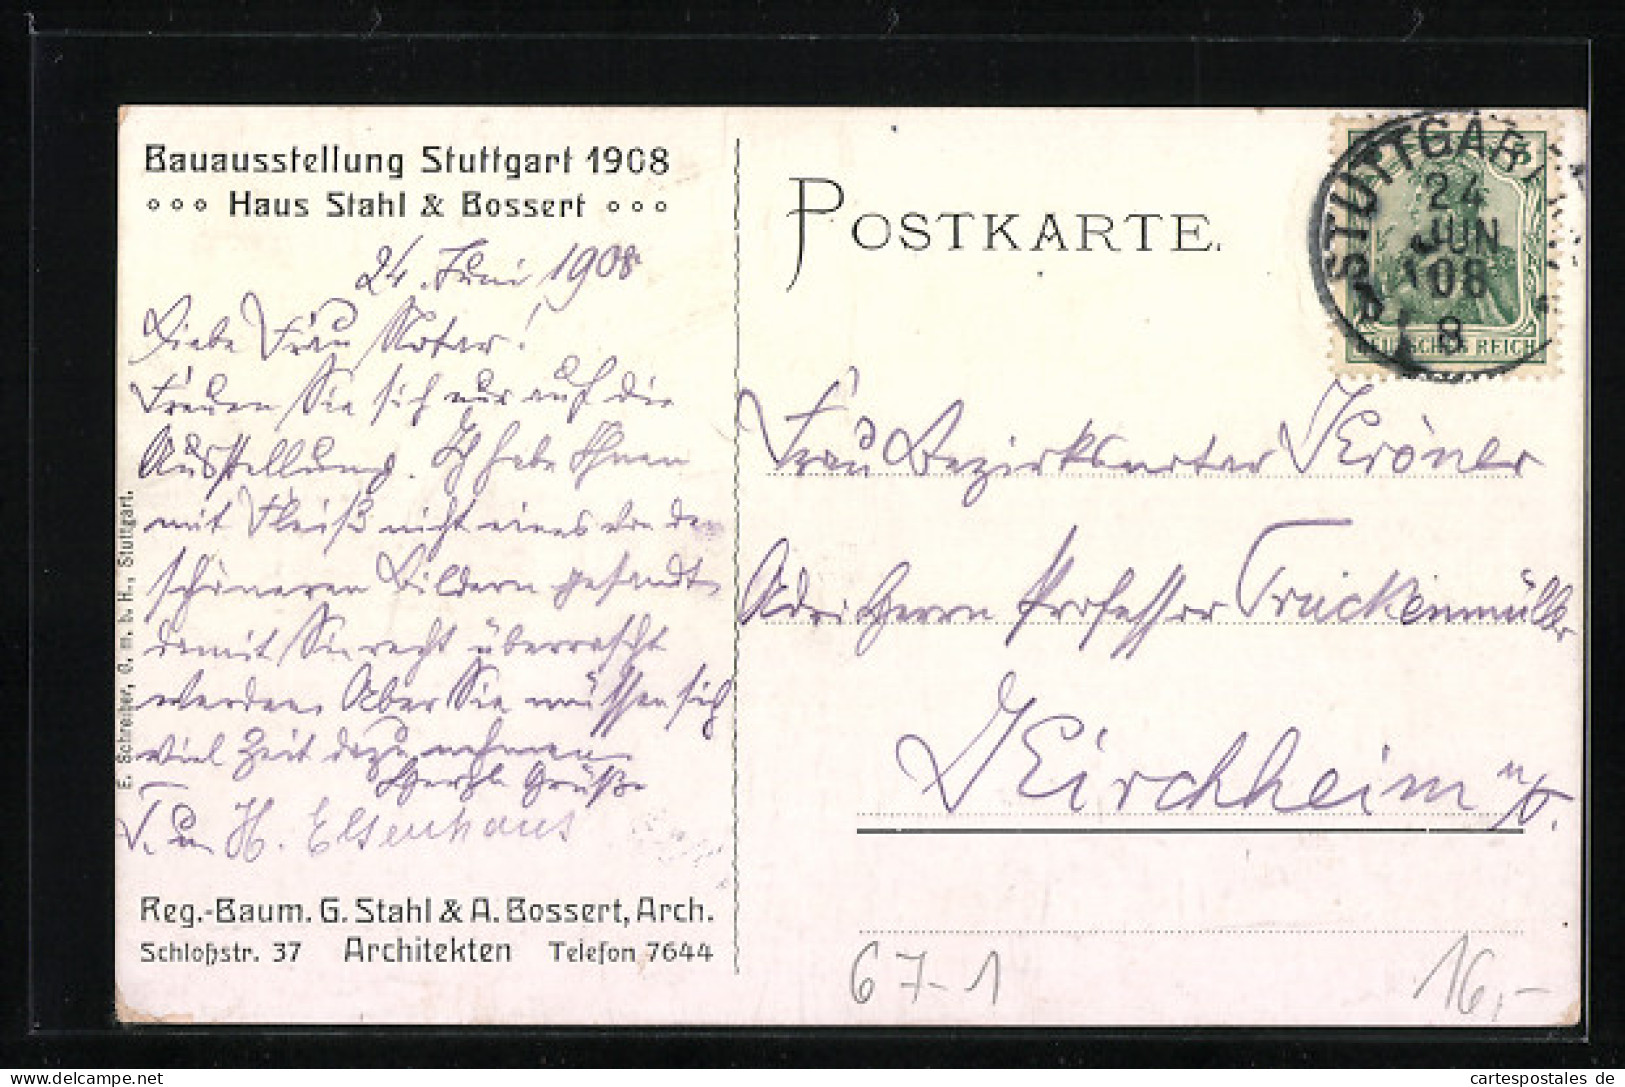 Bauausstellung Stuttgart 1908
Haus Stahl & Bossert
24. Juni 1908
Liebe Frau Notar!
Freuen Sie sich nur auf die
Ausstellung. Ich habe Ihnen
mit Fleiß nicht eines von den
schöneren Bildern gesandt
damit Sie recht überrascht
werden. Aber Sie müssen sich
viel Zeit dazu nehmen
Herzl. Grüße
T. u. H. Elsenhans
Reg.-Baum. G. Stahl & A. Bossert, Arch.
Schloßstr. 37 Architekten Telefon 7644
E. Schreiber, G. m. b. H., Stuttgart.
POSTKARTE.
STUTTGART
24
JUN
08
8
DEUTSCHES REICH
Frau Bezirksnotar Kröner
Adr: Herrn Professor Truckenmüller
Kirchheim u/T.
67-1
16,-
cartespostales de